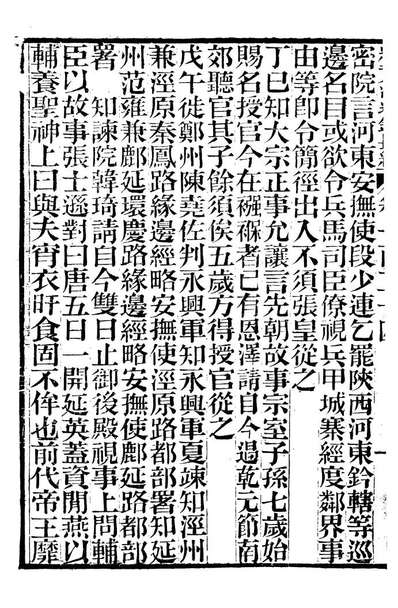 密院言河東安撫使段少連乞罷陝西河東鈐轄等巡
邊名目或欲令兵馬司臣僚視兵甲城寨經度鄰界事
由等卽令簡徑出入不須張皇從之
丁巳知大宗正事允讓言先朝故事宗室子孫七歲始
賜名授官今在襁褓者已有恩澤請自今遇乾元節南
郊聽官其子餘須俟五歲方得授官從之
戊午徙鄭州陳堯佐判永興軍知永興軍夏竦知涇州
兼涇原秦鳳路緣邊經略安撫使涇原路都部署知延
州范雍兼鄜延環慶路緣邊經略安撫使鄜延路都部
署　知諫院韓琦請自今雙日止御後殿視事上問輔
臣以故事張士遜對曰唐五日一開延英蓋資閒燕以
輔養聖神上曰與夫宵衣旰食固不侔也前代帝王靡